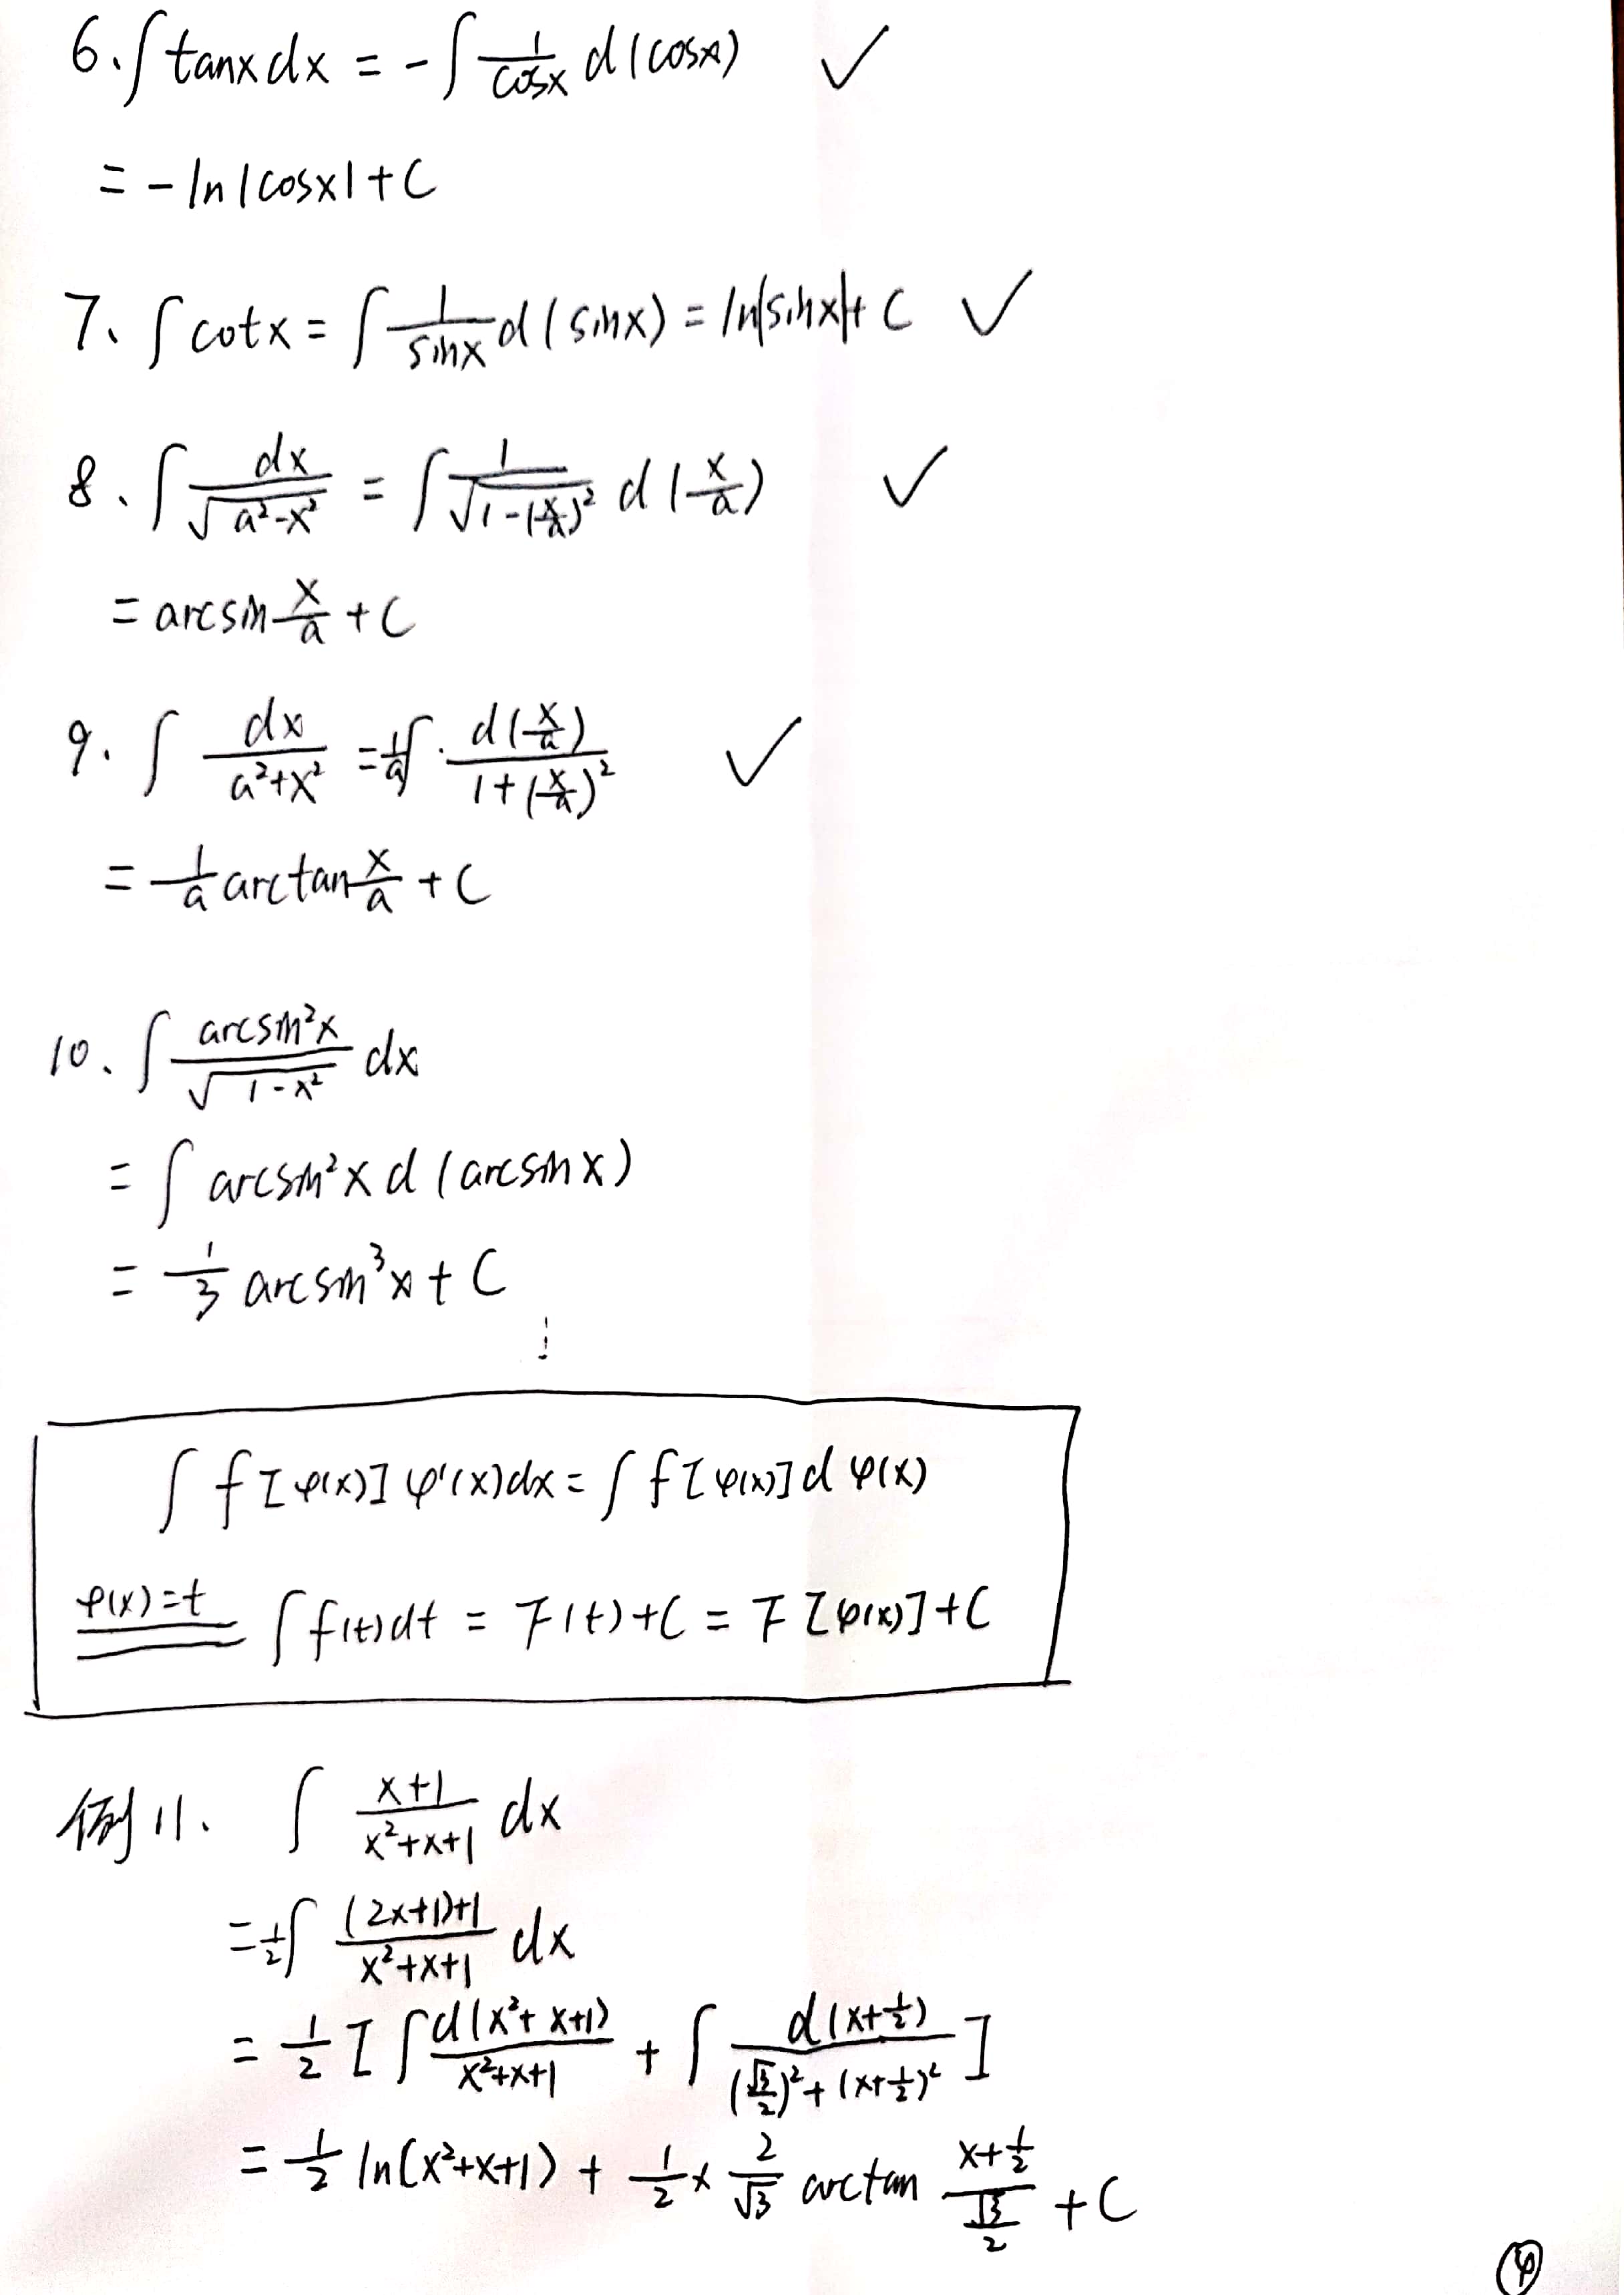 6、∫tanxdx = -∫ 1/cosx d(cosx) ✓
= -ln|cosx|+C
7、∫cotx = ∫ 1/sinx d(sinx) = ln|sinx|+C ✓
8、∫ dx/√(a²-x²) = ∫ 1/√(1-(x/a)²) d(x/a) ✓
= arcsin x/a + C
9、∫ dx/(a²+x²) = 1/a ∫· d(x/a)/(1+(x/a)²) ✓
= 1/a arctan x/a + C
10、∫ arcsin²x/√(1-x²) dx
= ∫ arcsin²x d(arcsinx)
= 1/3 arcsin³x + C
∫ f[φ(x)] φ'(x)dx = ∫ f[φ(x)] d φ(x)
φ(x)=t ∫f(t)dt = F(t)+C = F[φ(x)]+C
例11、 ∫ (x+1)/(x²+x+1) dx
= 1/2 ∫ ((2x+1)+1)/(x²+x+1) dx
= 1/2 [∫ d(x²+x+1)/(x²+x+1) + ∫ d(x+1/2)/((√3/2)²+(x+1/2)²)]
= 1/2 ln(x²+x+1) + 1/2 × 2/√3 arctan (x+1/2)/(√3/2) + C
④